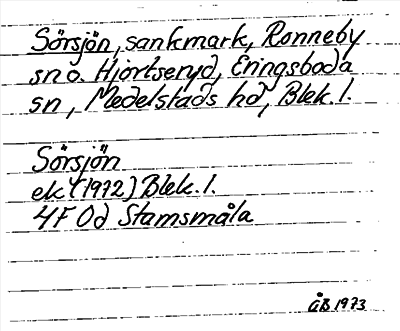 Sörsjön, sankmark, Ronneby
sn o. Hjortseryd, Eringsboda
sn, Medelstads hd, Blek. l.
Sörsjön
ek (1972) Blek. l.
4F 0d Stamsmåla
ÅB 1973